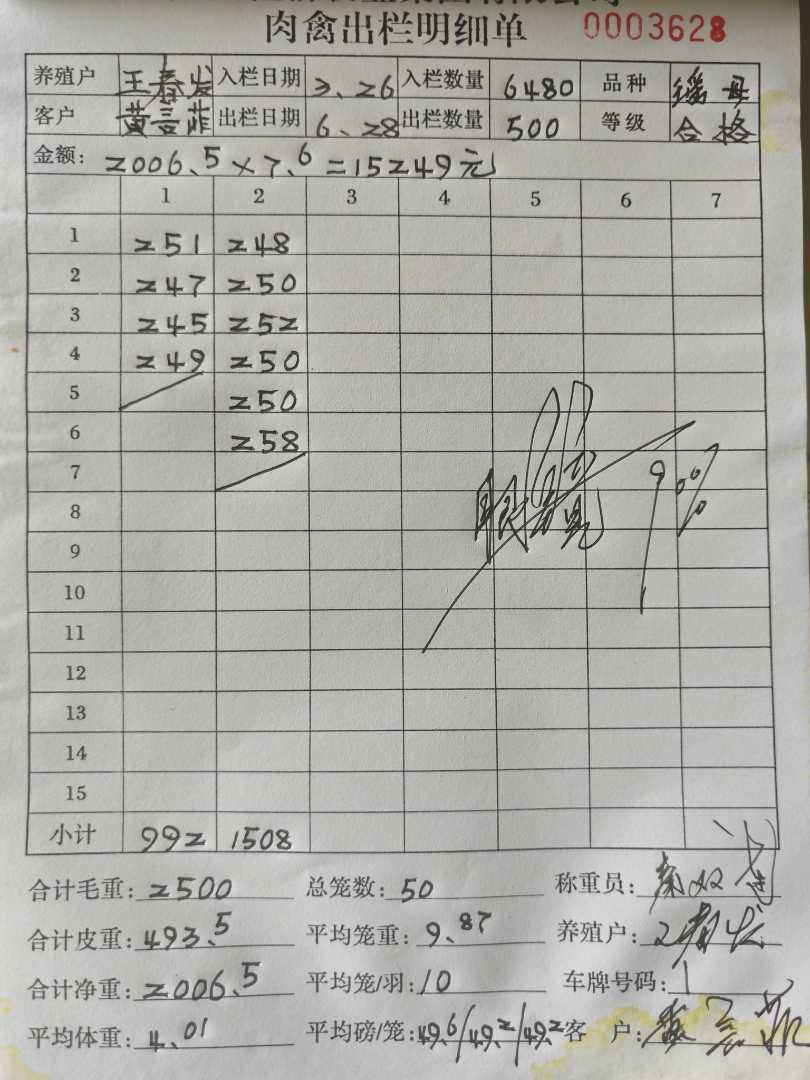 肉禽出栏明细单 0003628
养殖户 王春发 入栏日期 3、26 入栏数量 6480 品种 瑶母
客户 黄言菲 出栏日期 6、28 出栏数量 500 等级 合格
金额: 2006.5×7.6=15249元
1 2 3 4 5 6 7
1 251 248
2 247 250
3 245 252
4 249 250
5 250
6 258
7
8
9
10
11
12
13
14
15
小计 992 1508
合计毛重: 2500 总笼数: 50 称重员:
合计皮重: 493.5 平均笼重: 9.87 养殖户:
合计净重: 2006.5 平均笼/羽: 10 车牌号码:
平均体重: 4.01 平均磅/笼: 49.6/49.2/49.2 客 户: